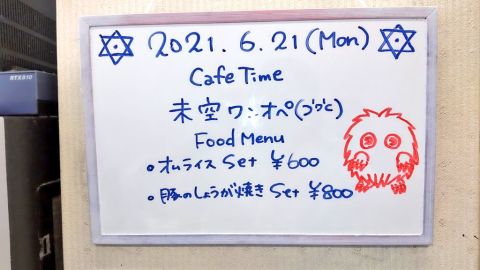 2021.6.21(Mon)
Cafe Time
未空ワンオペ
Food Menu
・オムライス Set ¥600
・豚のしょうが焼き Set ¥800
RTX810